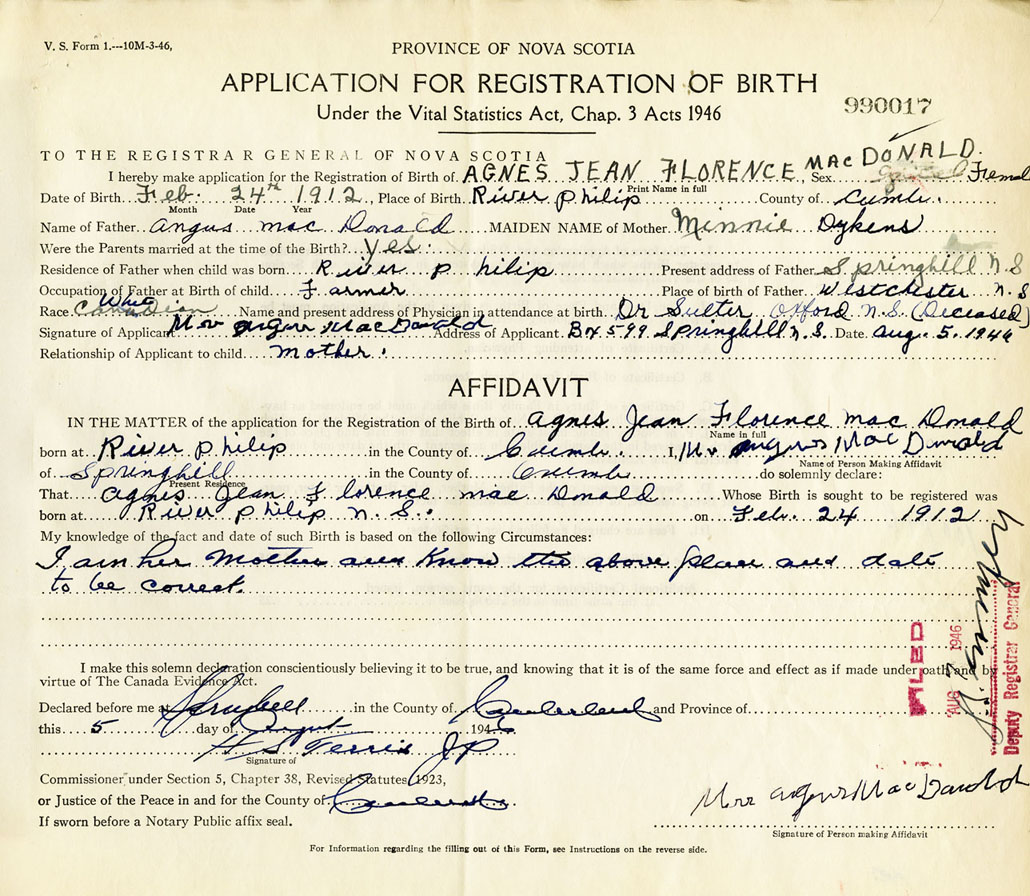 V. S. Form 1.---10M-3-46,
PROVINCE OF NOVA SCOTIA
APPLICATION FOR REGISTRATION OF BIRTH
Under the Vital Statistics Act, Chap. 3 Acts 1946
990017
TO THE REGISTRAR GENERAL OF NOVA SCOTIA
I hereby make application for the Registration of Birth of AGNES JEAN FLORENCE MacDONALD. Sex Female
Print Name in full
Date of Birth Feb. 24th 1912, Place of Birth River philip County of Cumb.
Month Date Year
Name of Father angus mac Donald MAIDEN NAME of Mother Minnie Dykens
Were the Parents married at the time of the Birth? yes.
Residence of Father when child was born River philip Present address of Father Springhill N.S
Occupation of Father at Birth of child Farmer Place of birth of Father Westchester N.S
Race White Canadian Name and present address of Physician in attendance at birth Dr Sutter Oxford N.S. (Deceased)
Signature of Applicant Mrs angus MacDonald Address of Applicant Box 599 Springhill N.S. Date aug. 5. 1946
Relationship of Applicant to child mother.
AFFIDAVIT
IN THE MATTER of the application for the Registration of the Birth of agnes Jean Florence mac Donald
Name in full
born at River philip in the County of Cumb. I, Mrs angus MacDonald
Name of Person Making Affidavit
of Springhill in the County of Cumb do solemnly declare:
Present Residence
That agnes Jean Florence mac Donald Whose Birth is sought to be registered was
born at River philip N.S. on Feb. 24 1912
My knowledge of the fact and date of such Birth is based on the following Circumstances:
I am her Mother and Know the above place and date
to be correct.
I make this solemn declaration conscientiously believing it to be true, and knowing that it is of the same force and effect as if made under oath and by
virtue of The Canada Evidence Act.
Declared before me at in the County of Cumberland and Province of
this 5 day of August 1946
J P
Signature of
Commissioner under Section 5, Chapter 38, Revised Statutes 1923,
or Justice of the Peace in and for the County of Cumberland
If sworn before a Notary Public affix seal.
FILED
AUG 1946
Deputy Registrar General
Mrs angus MacDonald
Signature of Person making Affidavit
For Information regarding the filling out of this Form, see Instructions on the reverse side.